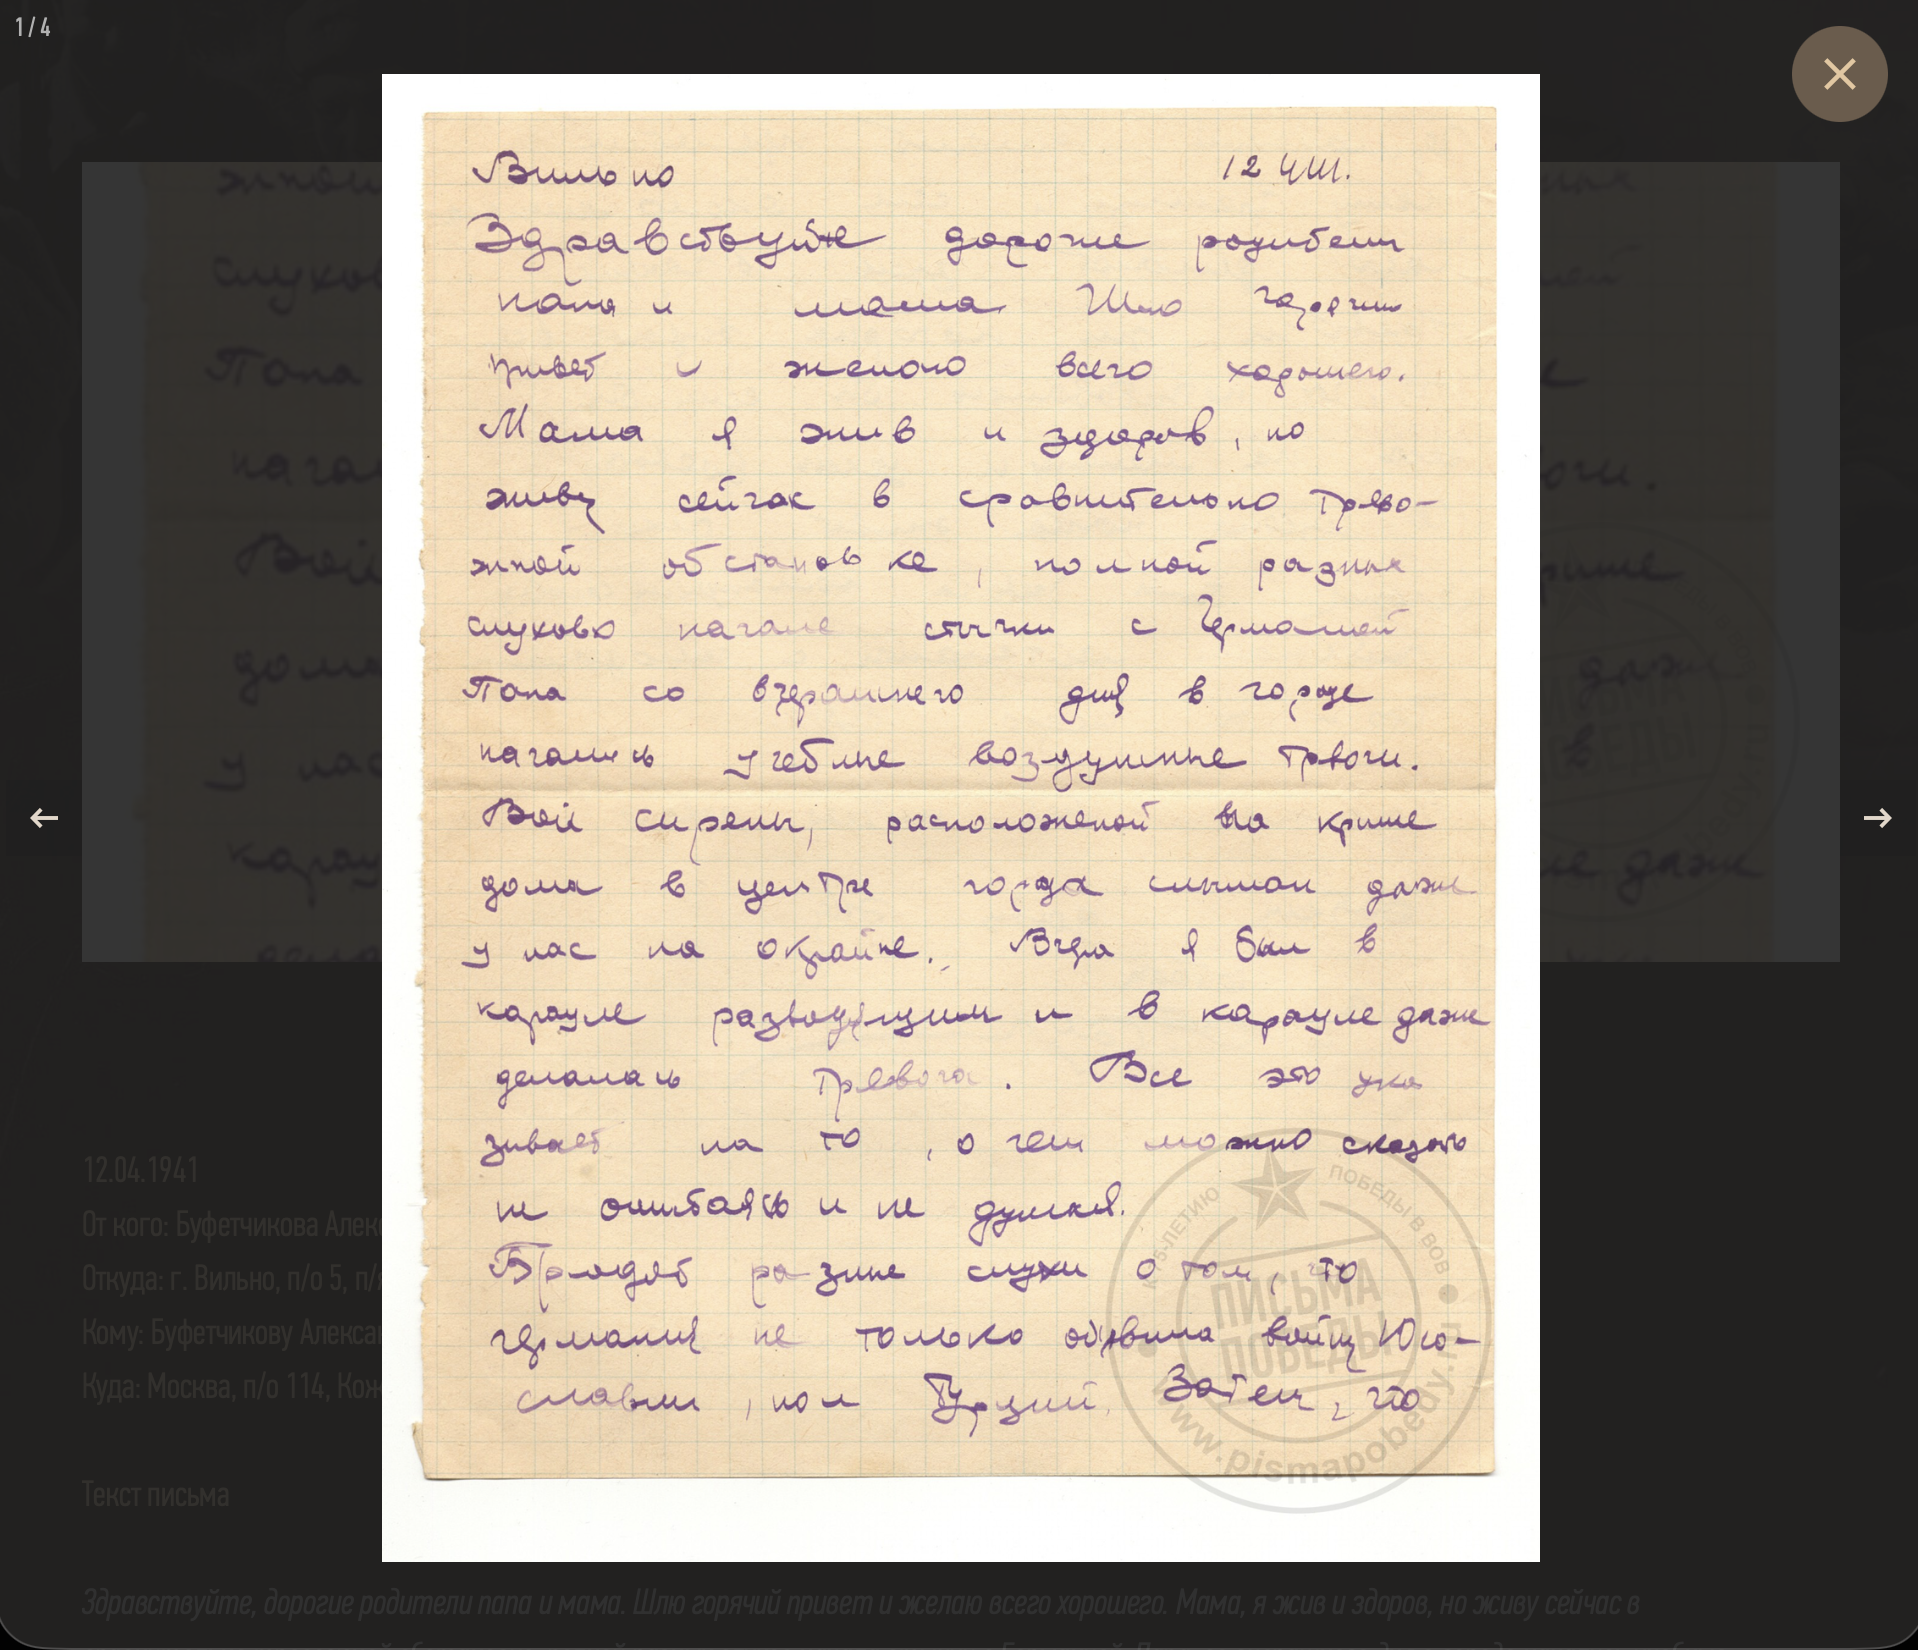 1 / 4
Вильно 12 ЧШ.
Здравствуйте дорогие родители
папа и мама Шлю горячии
привет и желаю всего хорошего.
Мама я жив и здоров, но
живу сейчас в сравнительно трево-
жной обстановке, полной разных
слухов о начале стычки с Германией
Папа со вчерашнего дня в городе
начались учебные воздушные тревоги.
Вой сирены, расположеной на крыше
дома в центре города слышан даже
у нас на окрайне. Вчера я был в
карауле разводящим и в карауле даже
делалась тревога. Все это ука
зывает на то, о чем можно сказать
не ошибаясь и не думая.
Бродят разные слухи о том, что
германия не только объявила войну Юго-
славии, но и Турции. Затем, что
К 65-ЛЕТИЮ ПОБЕДЫ В ВОВ
ПИСЬМА
ПОБЕДЫ
www.pismapobedy.ru
12.04.1941
От кого: Буфетчикова
Откуда: г. Вильно, п/о 5,
Кому: Буфетчикову
Куда: Москва, п/о 114,
Текст письма
Здравствуйте, дорогие родители папа и мама. Шлю горячий привет и желаю всего хорошего. Мама, я жив и здоров, но живу сейчас в